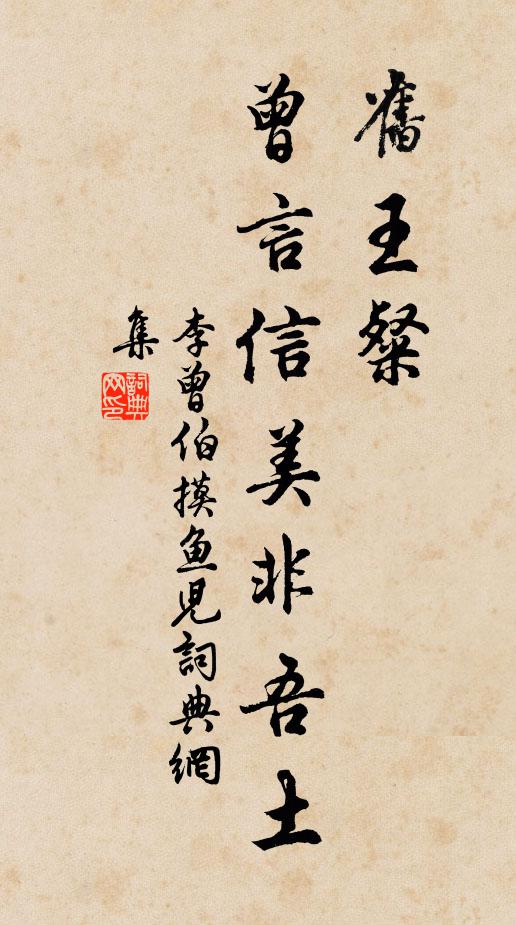 舊王粲
曾言信美非吾土
李曾伯摸魚兒詞典網
集
詞典
网印